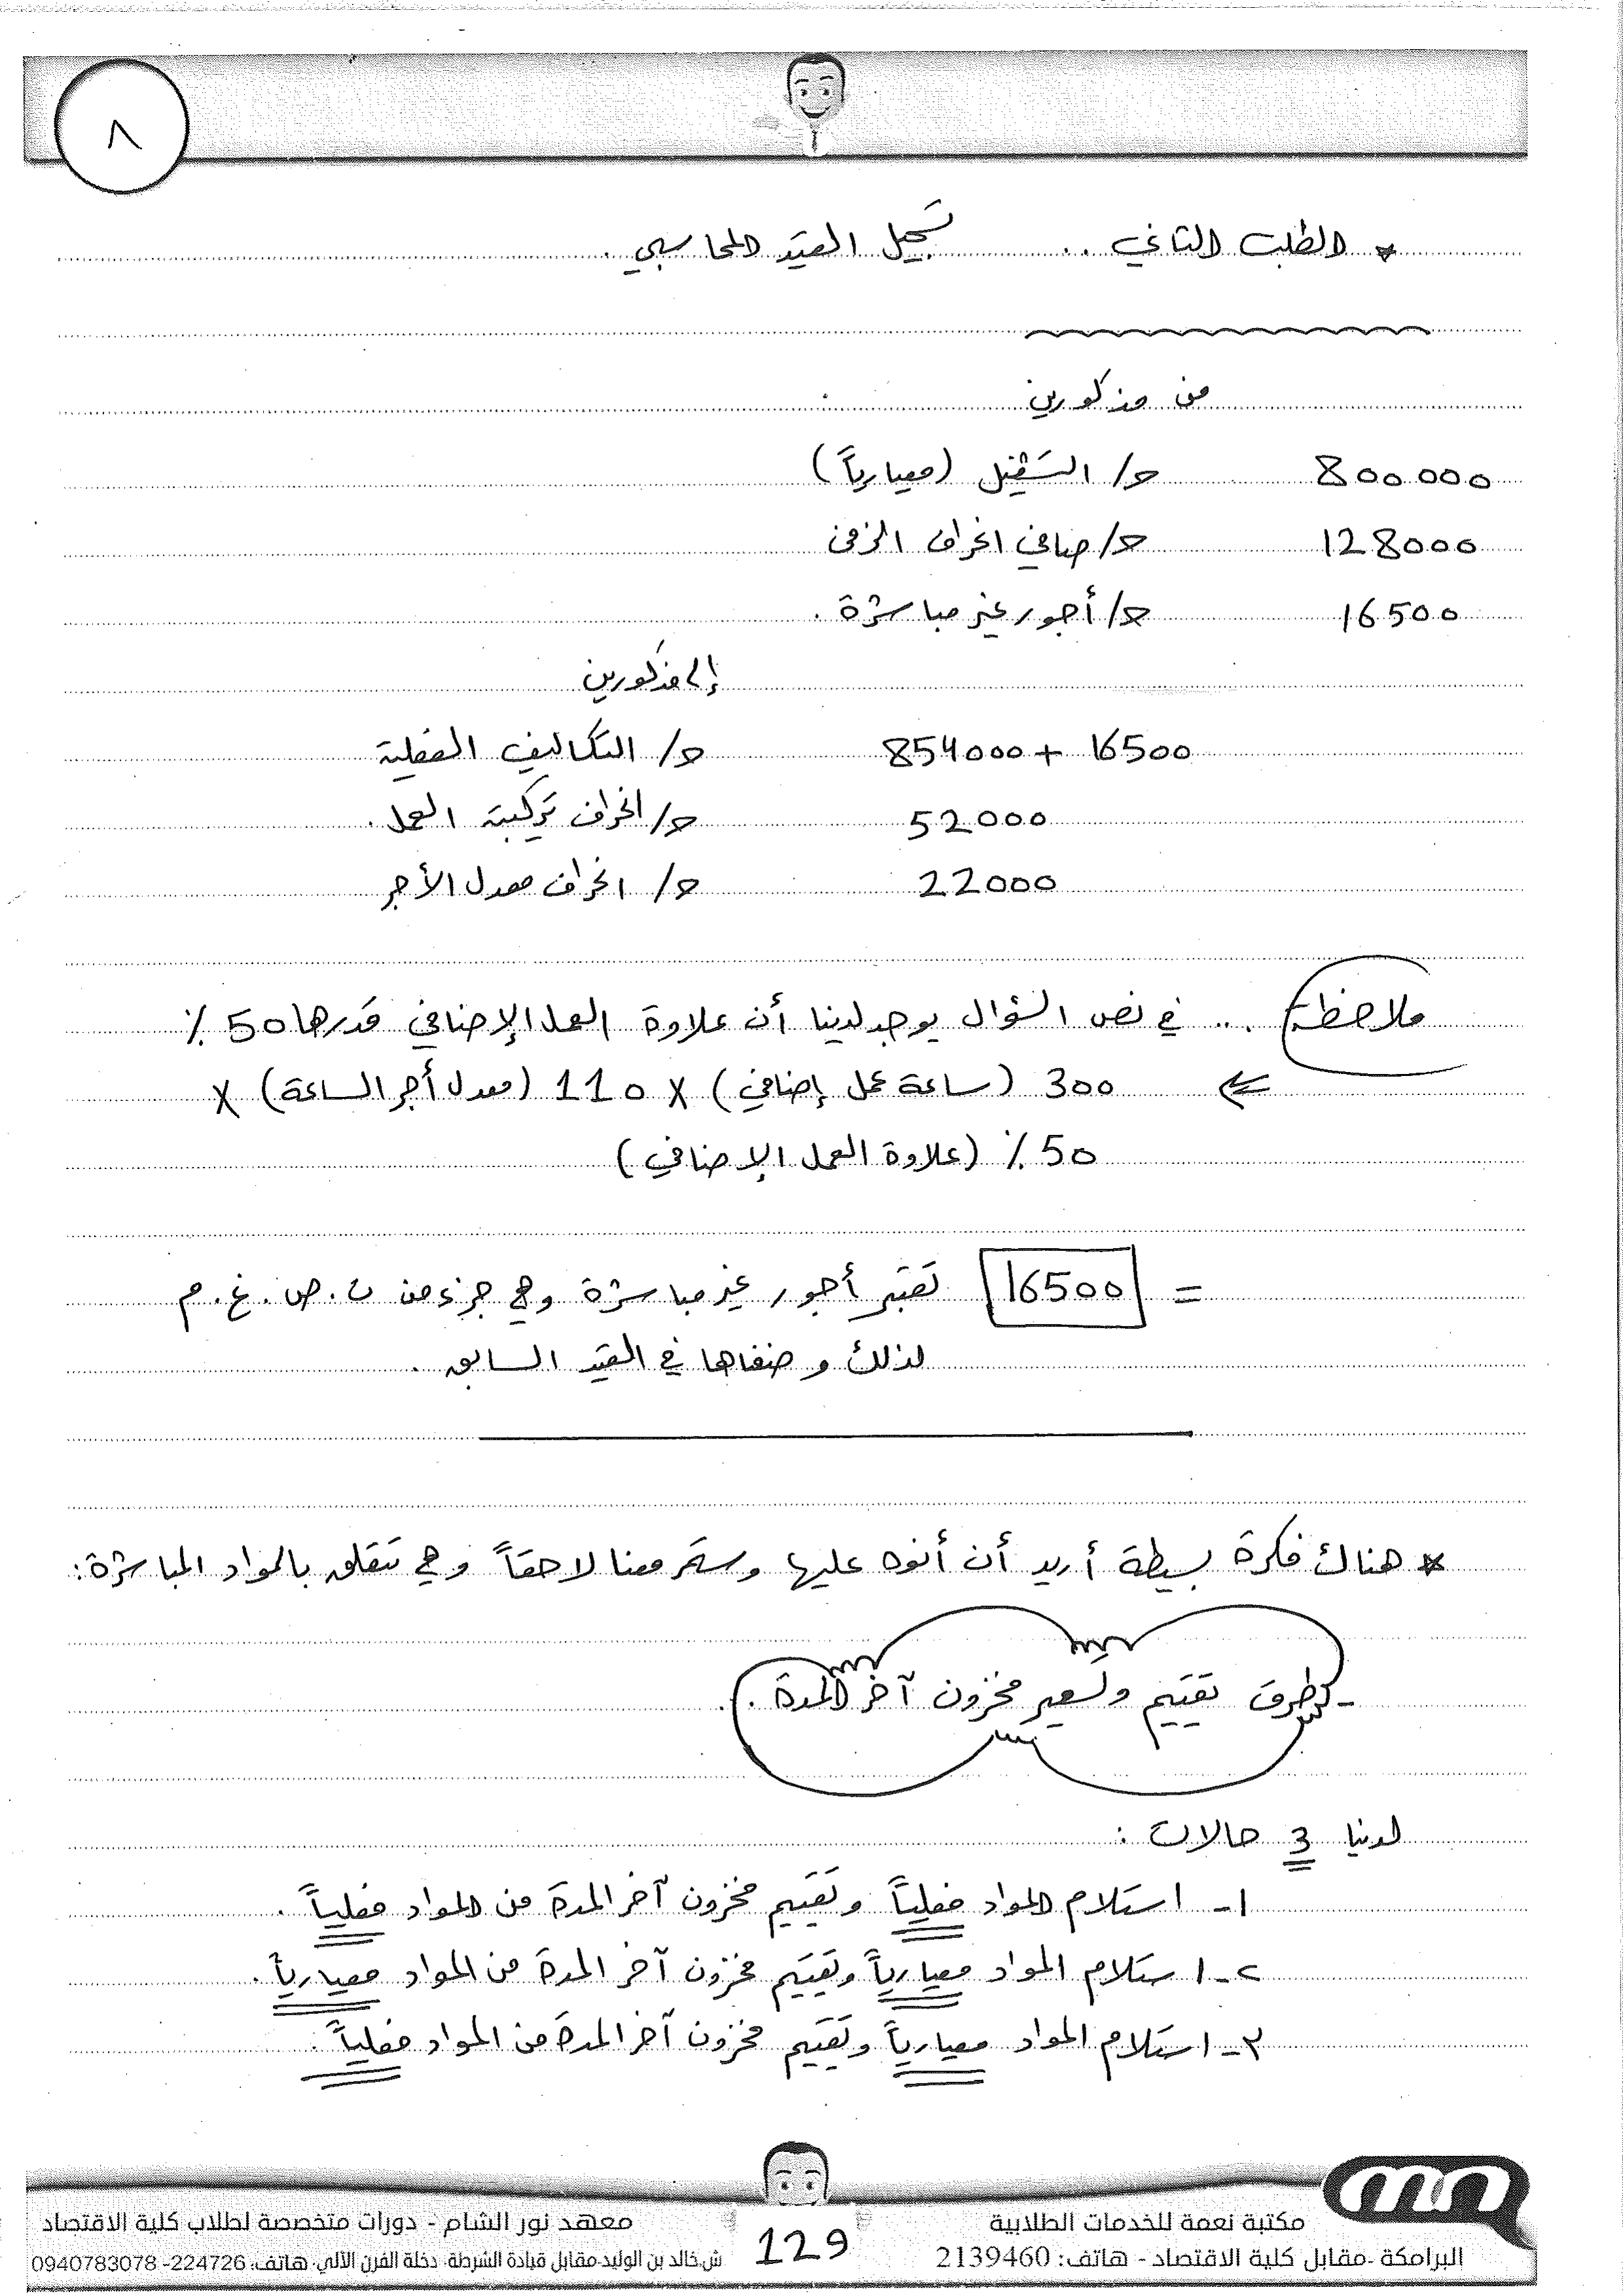 ٨
* الطلب الثاني .. تسجيل القيد المحاسبي .
من مذكورين
800000 ح/ التشغيل (معيارياً)
128000 ح/ صافي انحراف الزمن
16500 ح/ أجور غير مباشرة .
إلى مذكورين
854000 + 16500 ح/ التكاليف الفعلية
52000 ح/ انحراف تركيبة العمل .
22000 ح/ انحراف معدل الأجر
ملاحظة ... في نص السؤال يوجد لدينا أن علاوة العمل الإضافي قدرها 50 ٪
⇐ 300 (ساعة عمل إضافي) × 110 (معدل أجر الساعة) ×
50 ٪ (علاوة العمل الإضافي)
= 16500 تعتبر أجور غير مباشرة وهي جزء من ت . ص . غ . م
لذلك وضعناها في القيد السابق .
* هناك فكرة بسيطة أريد أن أنوه عليها وستمر معنا لاحقاً وهي تتعلق بالمواد المباشرة :
- طرق تقييم وتسعير مخزون آخر المدة . .
لدينا 3 حالات :
١ - استلام المواد فعلياً وتقييم مخزون آخر المدة من المواد فعلياً .
٢ - استلام المواد معيارياً وتقييم مخزون آخر المدة من المواد معيارياً .
٣ - استلام المواد معيارياً وتقييم مخزون آخر المدة من المواد فعلياً .
مكتبة نعمة للخدمات الطلابية
البرامكة -مقابل كلية الاقتصاد - هاتف: 2139460
129
معهد نور الشام - دورات متخصصة لطلاب كلية الاقتصاد
ش.خالد بن الوليد-مقابل قيادة الشرطة- دخلة الفرن الآلي- هاتف: 224726- 0940783078